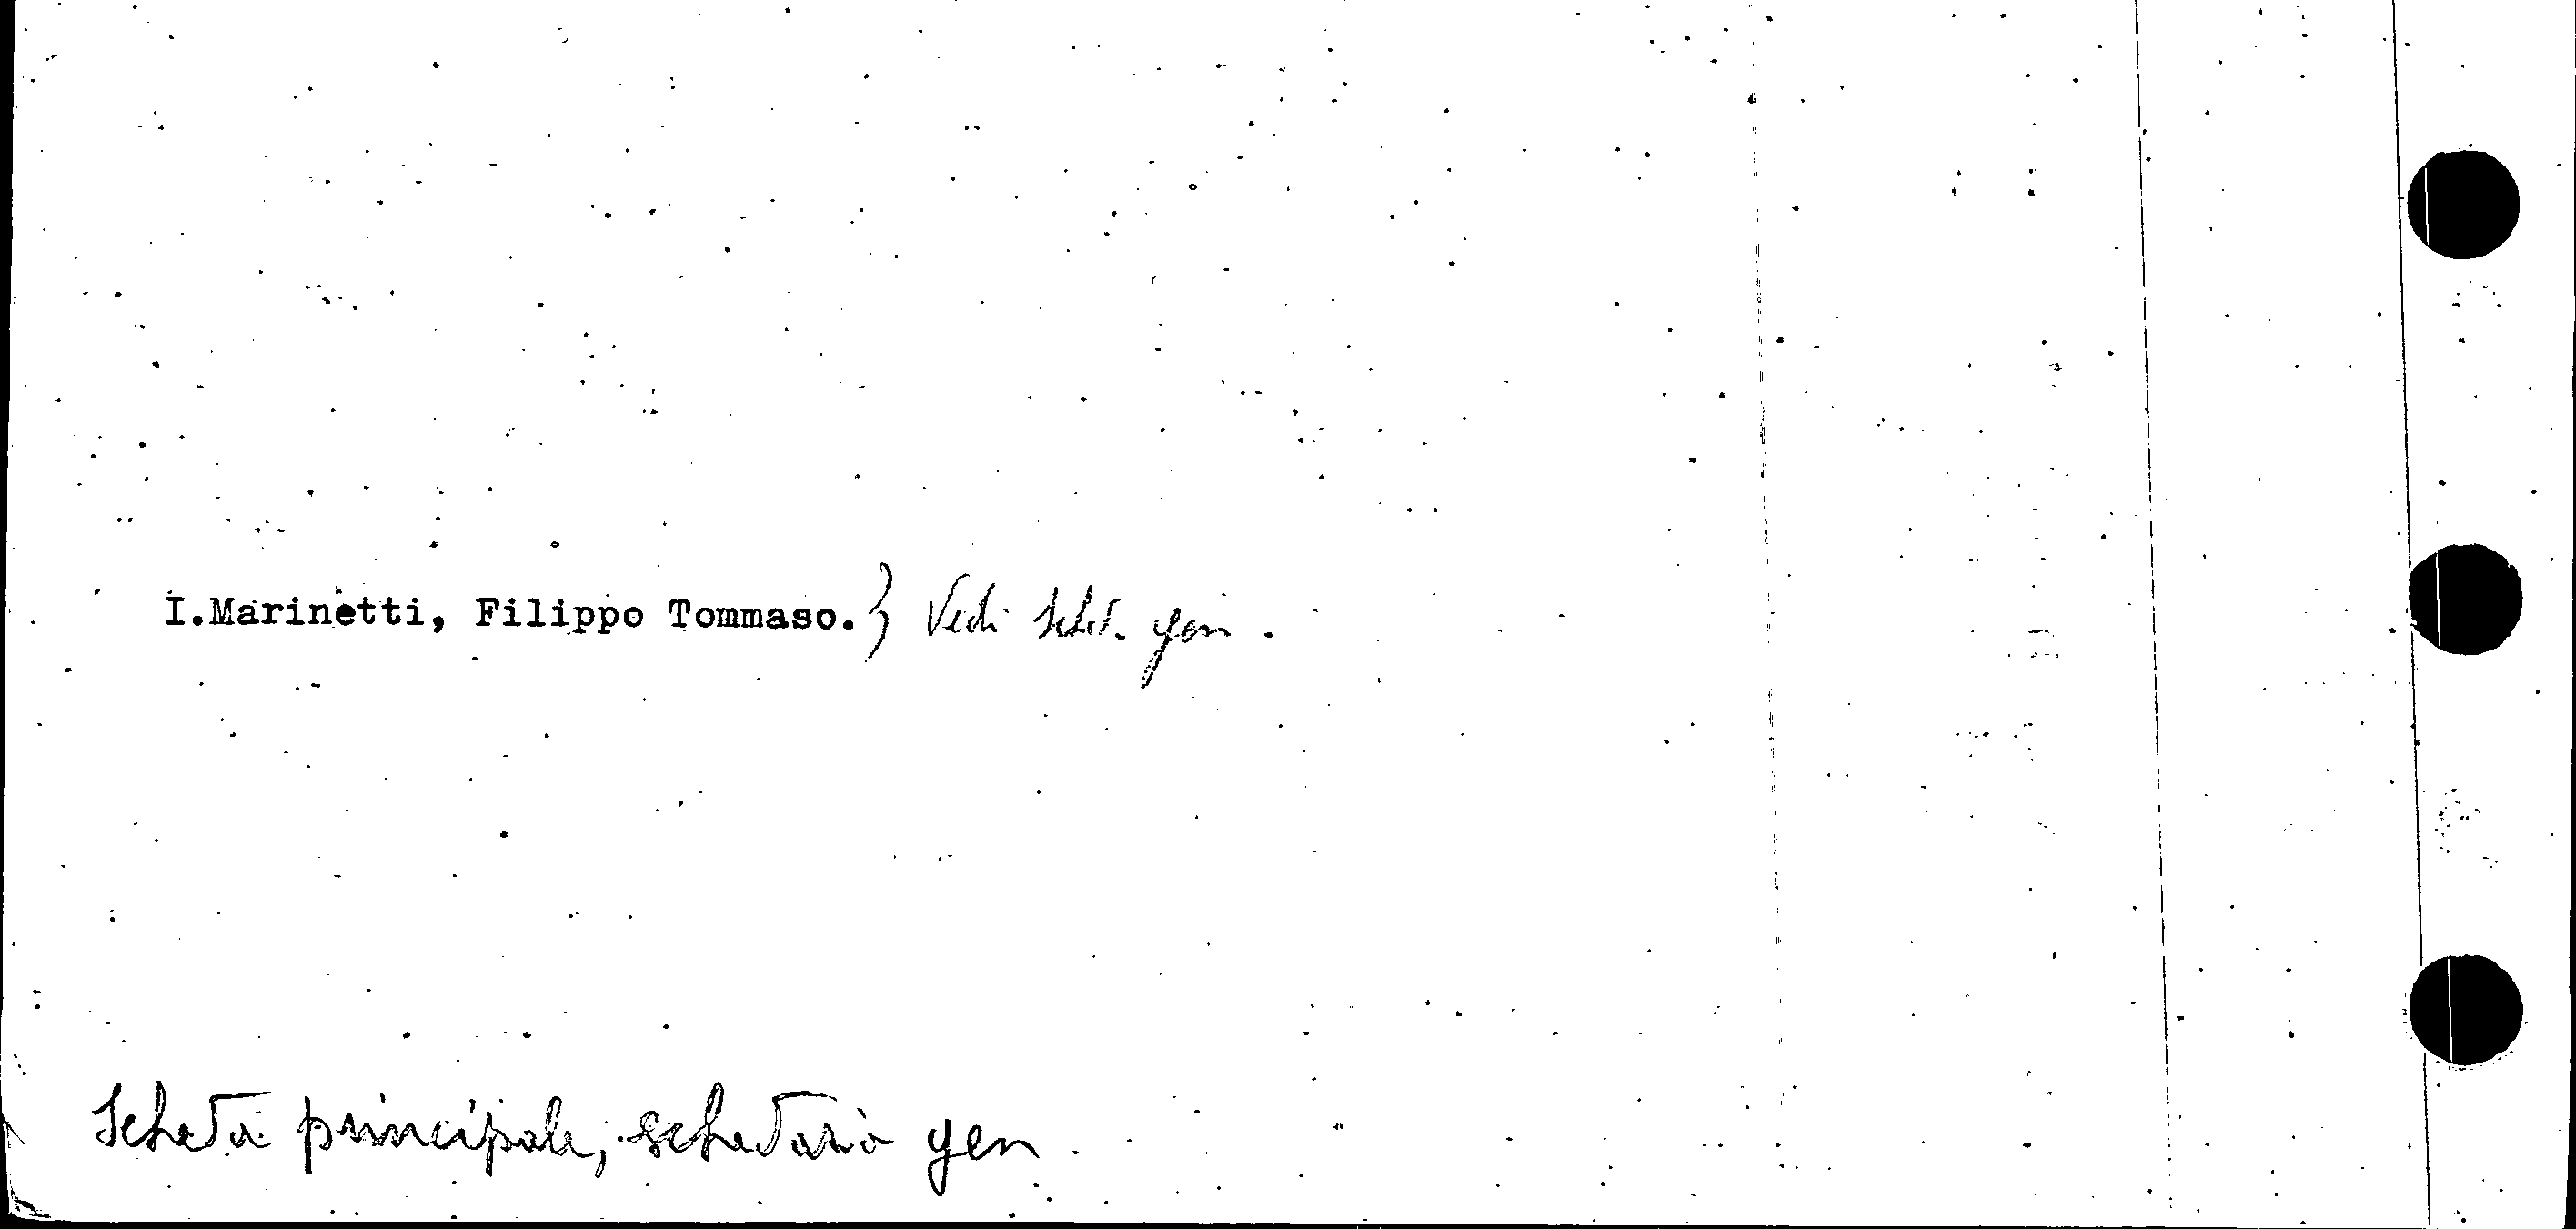 I.Marinetti, Filippo Tommaso. } Vedi sched. gen.
Scheda principale, schedario gen